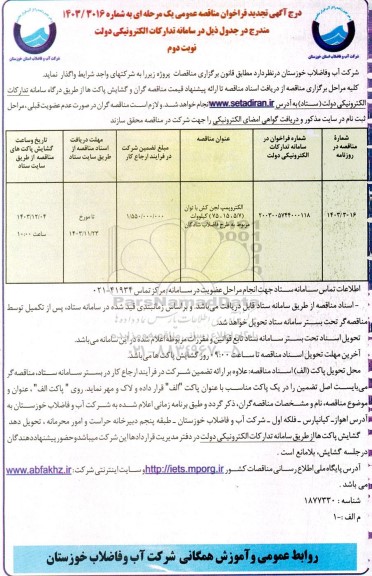 درج آگهی تجدید فراخوان مناقصه عمومی یک مرحله ای به شماره ۳۰۱۶ /۱۴۰۳
مندرج در جدول ذیل در سامانه تدارکات الکترونیکی دولت
نوبت دوم
شرکت آب و فاضلاب خوزستان
شرکت آب وفاضلاب خوزستان درنظردارد مطابق قانون برگزاری مناقصات پروژه زیررا به شرکتهای واجد شرایط واگذار نماید.
کلیه مراحل برگزاری مناقصه از دریافت اسناد مناقصه تا ارائه پیشنهاد قیمت مناقصه گران و گشایش پاکت ها از طریق درگاه سامانه تدارکات
الکترونیکی دولت (ستاد) به آدرس www.setadiran.ir انجام خواهد شد. و لازم است مناقصه گران در صورت عدم عضویت قبلی، مراحل
ثبت نام در سایت مذکور و دریافت گواهی امضای الکترونیکی را جهت شرکت در مناقصه محقق سازند
شماره مناقصه در روزنامه
شماره فراخوان در سامانه تدارکات الکترونیکی دولت
عنوان مناقصه
مبلغ تضمین شرکت در فرایند ارجاع کار
مهلت دریافت اسناد مناقصه از طریق سایت ستاد
تاریخ وساعت گشایش پاکت های مناقصه از طریق سایت ستاد
۱۴۰۳/۳۰۱۶
۲۰۰۳۰۰۵۷۴۴۰۰۰۱۱۸
الکتروپمپ لجن کش با توان
(۷۵، ۱۵، ۵/۷) کیلووات
مربوط به طرح فاضلاب شادگان
۱/۵۵۰/۰۰۰/۰۰۰
تا مورخ
۱۴۰۳/۱۱/۲۳
۱۴۰۳/۱۲/۰۴
ساعت ۱۰:۰۰
اطلاعات تماس سامانه ستاد جهت انجام مراحل عضویت در سامانه: مرکز تماس ۴۱۹۳۴-۰۲۱
- اسناد مناقصه از طریق ستاد قابل دریافت می‌باشد. و براساس زمانبندی قید شده در سامانه ستاد، پس از تکمیل توسط
مناقصه گر تحت بستر سامانه ستاد تحویل خواهد شد.
تحویل اسناد تحت بستر سامانه ستاد تابع قوانین و مقررات مربوطه اعلام شده در این سامانه می‌باشد.
آخرین مهلت تحویل اسناد مناقصه تا ساعت ۰۹:۰۰ روز گشایش پاکت ها می‌باشد.
محل تحویل پاکت (الف) اسناد مناقصه: علاوه بر ارائه تضمین شرکت در فرآیند ارجاع کار در بستر سامانه ستاد، مناقصه گر
می‌بایست اصل تضمین را در یک پاکت مناسب با عنوان پاکت "الف" قرار داده و لاک و مهر نماید. روی " پاکت الف" ، عنوان و
موضوع مناقصه، نام و مشخصات مناقصه گران، ذکر گردد و طبق برنامه زمانی اعلام شده به شرکت آب و فاضلاب خوزستان به
آدرس اهواز- کیانپارس - فلکه اول - شرکت آب و فاضلاب خوزستان - طبقه پنجم دبیرخانه حراست و امور محرمانه ، تحویل دهد
گشایش پاکت ها از طریق سامانه تدارکات الکترونیکی دولت در دفتر مدیریت قراردادها این شرکت میباشد وحضور پیشنهاد دهندگان
در جلسه گشایش، بلامانع است .
آدرس پایگاه ملی اطلاع رسانی مناقصات کشور http://iets.mporg.ir و سایت اینترنتی شرکت: www.abfakhz.ir
می باشد .
شناسه : ۱۸۷۷۳۳۰
م الف : ۱۰
روابط عمومی و آموزش همگانی شرکت آب و فاضلاب خوزستان